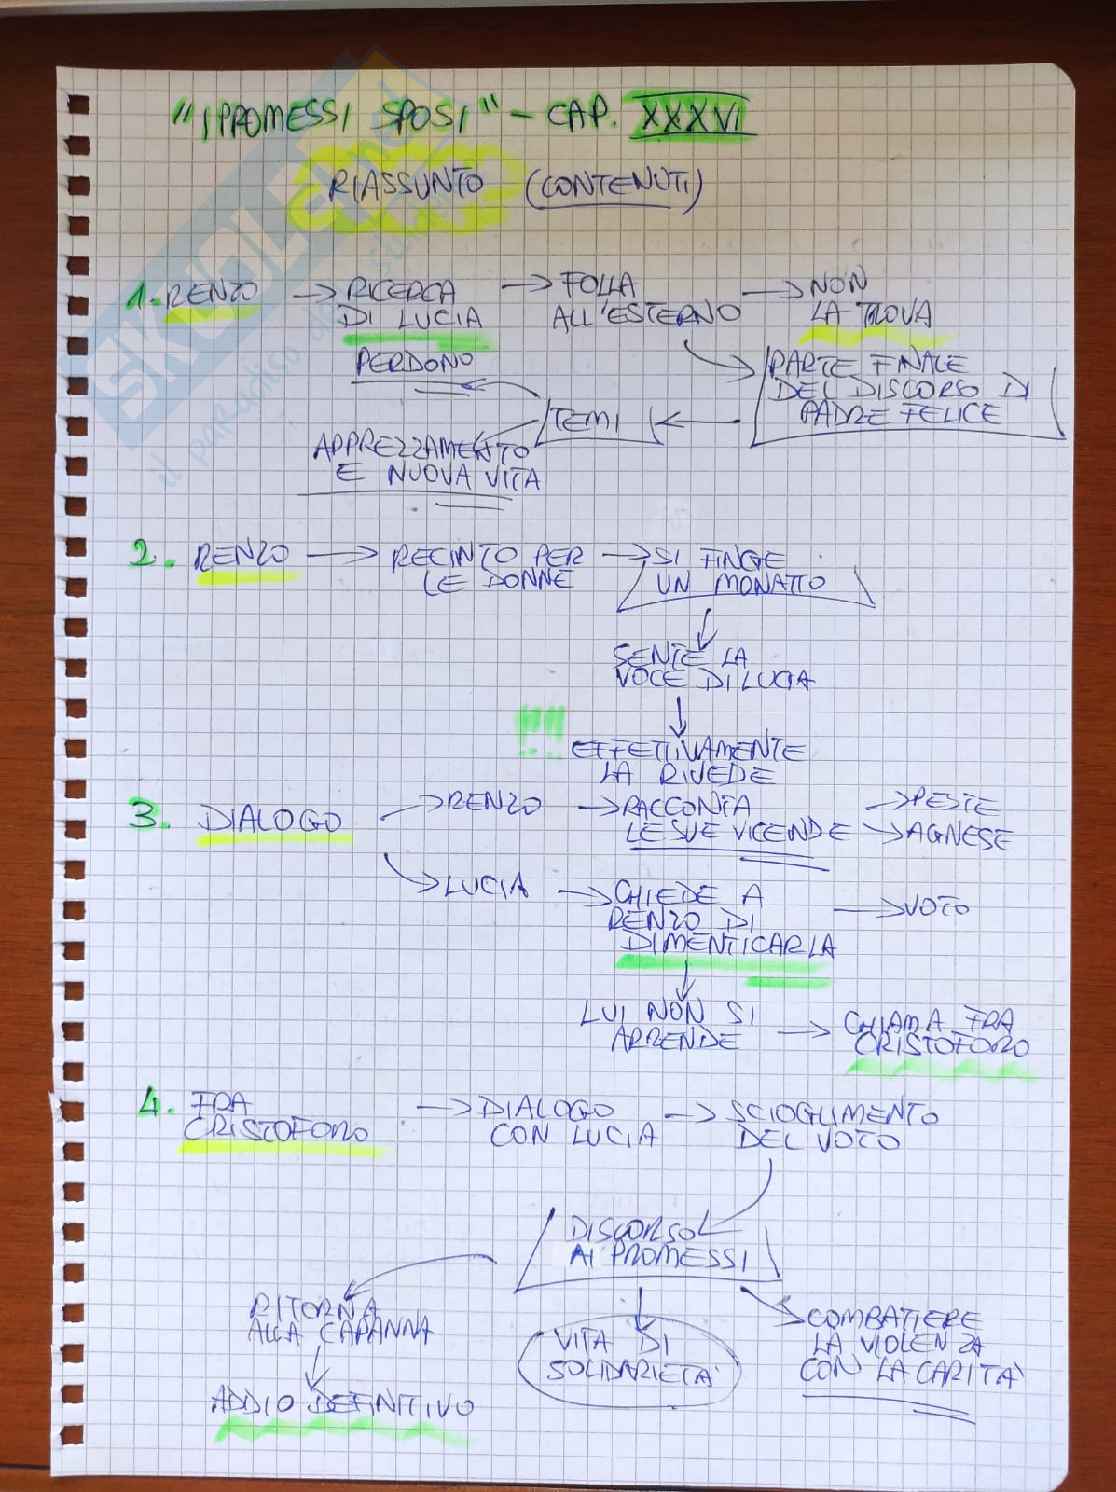 "I PROMESSI SPOSI" - CAP. XXXVI
RIASSUNTO (CONTENUTI)
1. RENZO → RICERCA DI LUCIA → FOLLA ALL'ESTERNO → NON LA TROVA
PARTE FINALE
DEL DISCORSO DI
PADRE FELICE
TEMI
PERDONO
APPREZZAMENTO
E NUOVA VITA
2. RENZO → RECINTO PER LE DONNE → SI FINGE UN MONATTO
SENTE LA
VOCE DI LUCIA
!!!
EFFETTIVAMENTE
LA RIVEDE
3. DIALOGO
→ RENZO → RACCONTA LE SUE VICENDE → PESTE → AGNESE
→ LUCIA → CHIEDE A RENZO DI DIMENTICARLA → VOTO
LUI NON SI ARRENDE → CHIAMA FRA CRISTOFORO
4. FRA CRISTOFORO → DIALOGO CON LUCIA → SCIOGLIMENTO DEL VOTO
DISCORSO
AI PROMESSI
RITORNA
ALLA CAPANNA
ADDIO DEFINITIVO
VITA DI
SOLIDARIETA'
COMBATTERE
LA VIOLENZA
CON LA CARITA'
SKUOLA
il paradiso